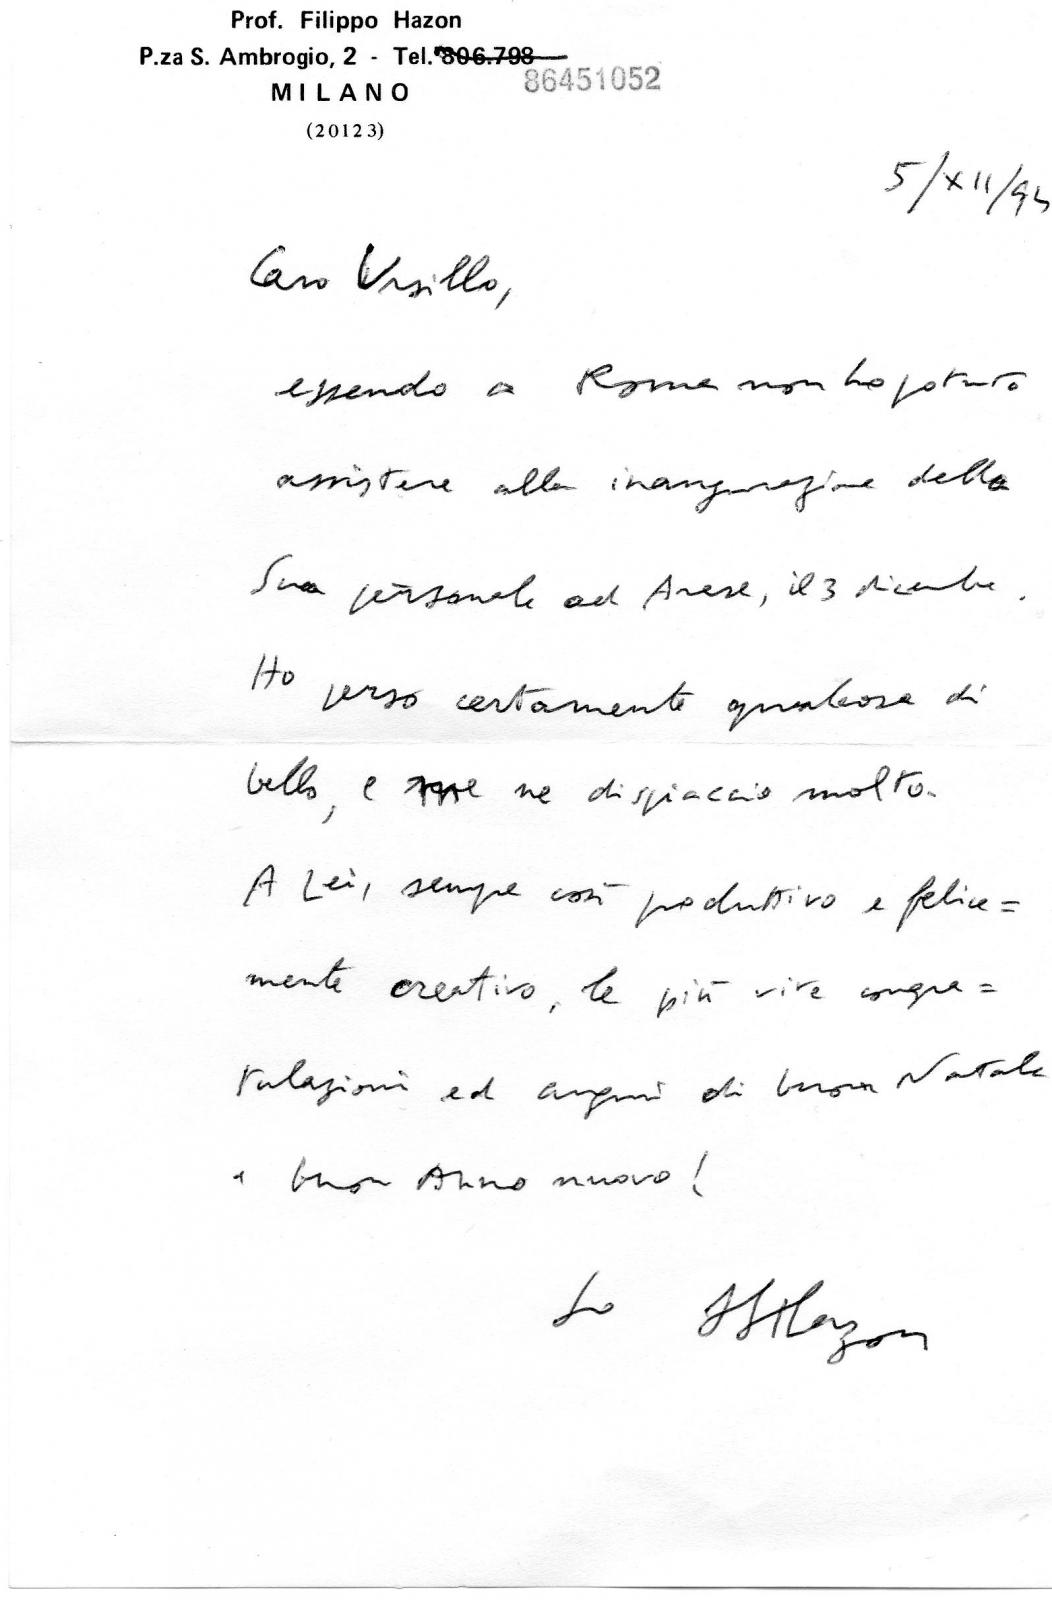 Prof. Filippo Hazon
P.za S. Ambrogio, 2 - Tel. 806.798
86451052
MILANO
(20123)
5/XII/94
Caro Ursillo,
essendo a Roma non ho potuto
assistere alla inaugurazione della
Sua personale ad Arese, il 3 dicembre.
Ho perso certamente qualcosa di
bello, e me ne dispiaccio molto.
A Lei, sempre così produttivo e felice=
mente creativo, le più vive congra=
tulazioni ed auguri di buon Natale
e buon Anno nuovo!
Hazon